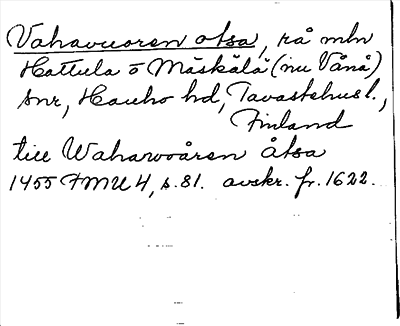 Vahavuoren otsa, rå mln
Hattula o Mäskälä (nu Vånå)
snr, Hauho hd, Tavastehusl.,
Finland
till Waharwoåren åtsa
1455 FMU 4, s. 81. avskr. fr. 1622.